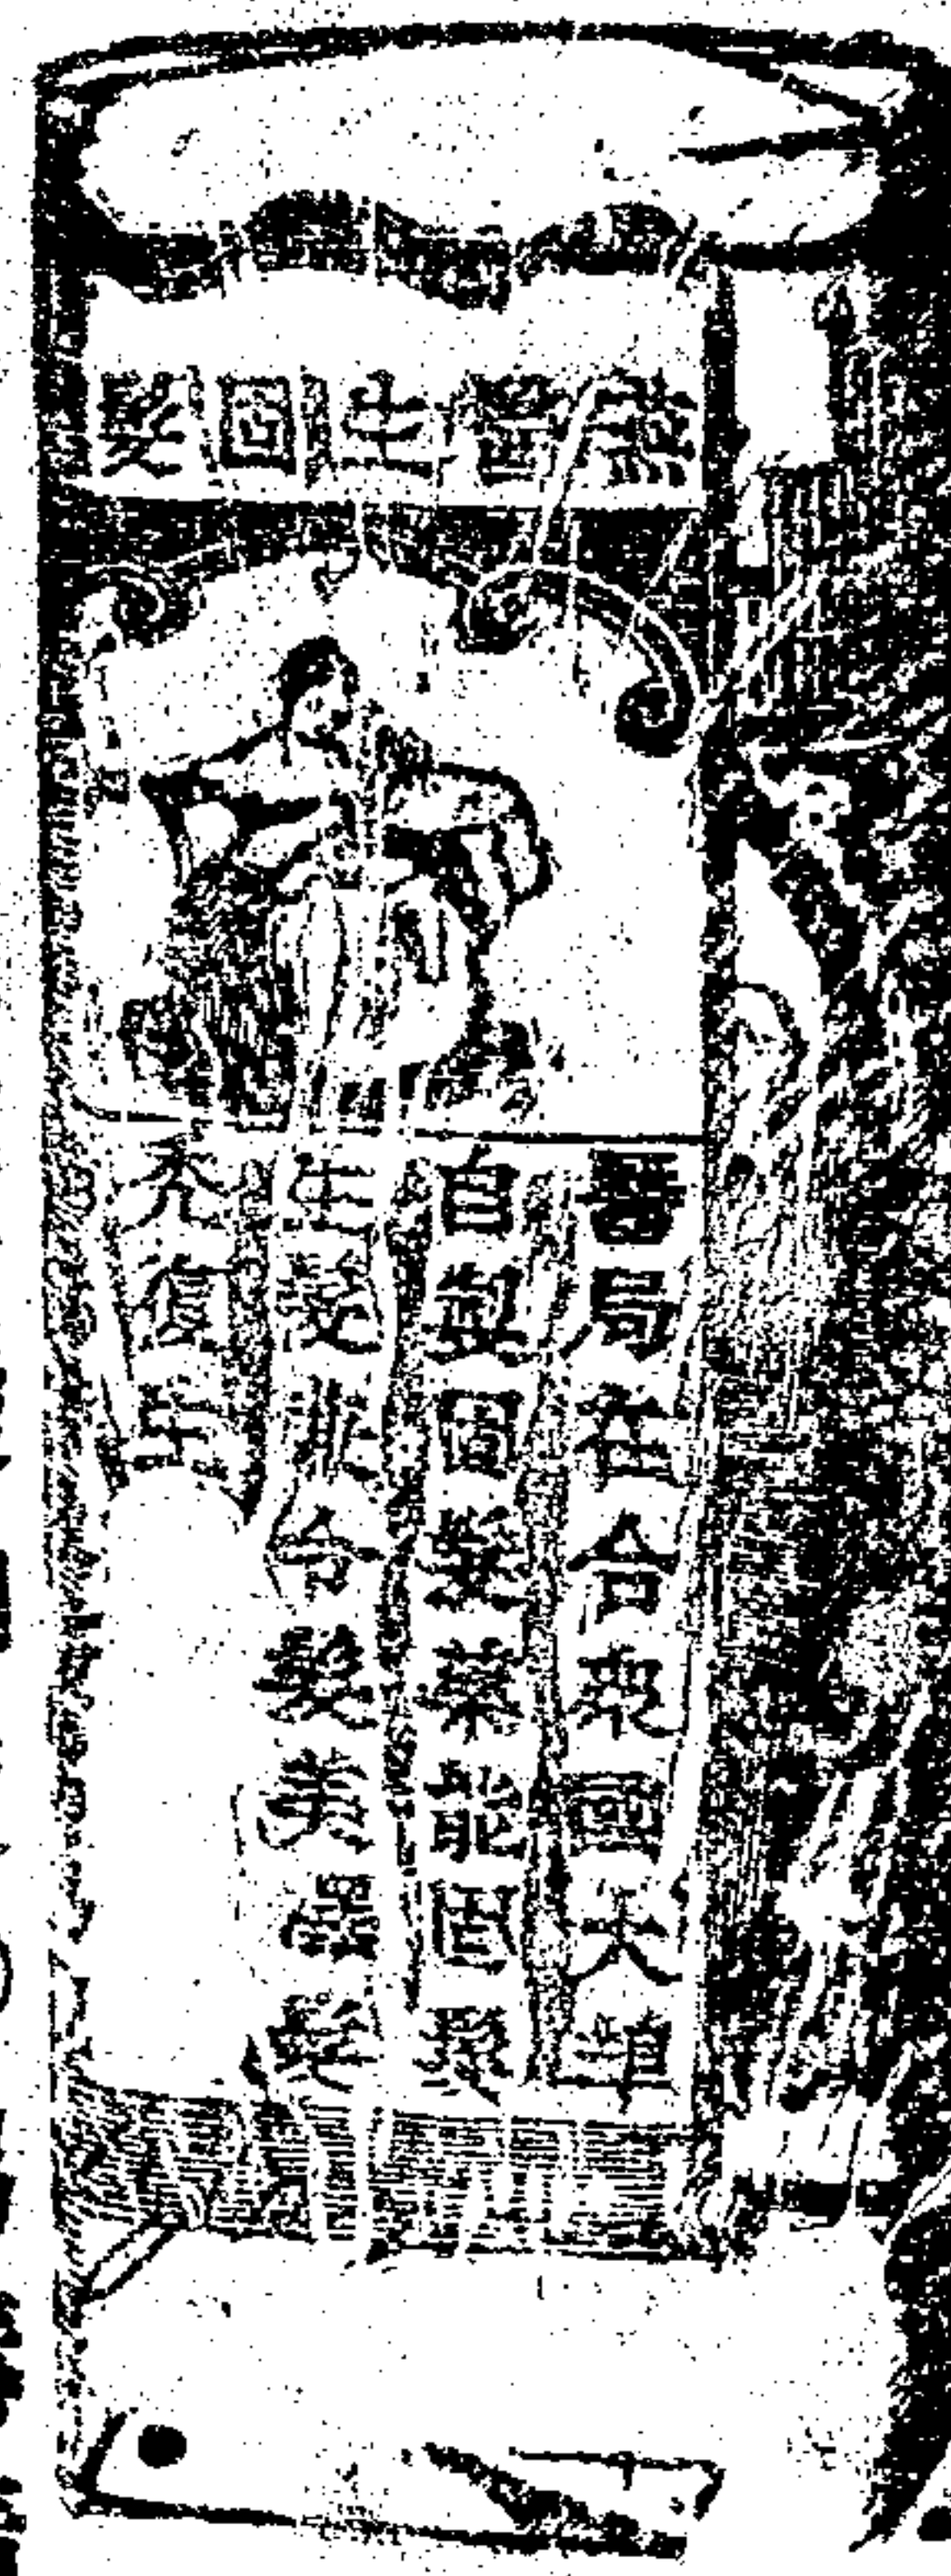 燕醫生固髮
醫局在合眾國大埠
自製固髮藥能固髮
生髮兼令髮美澤髮
禿復生